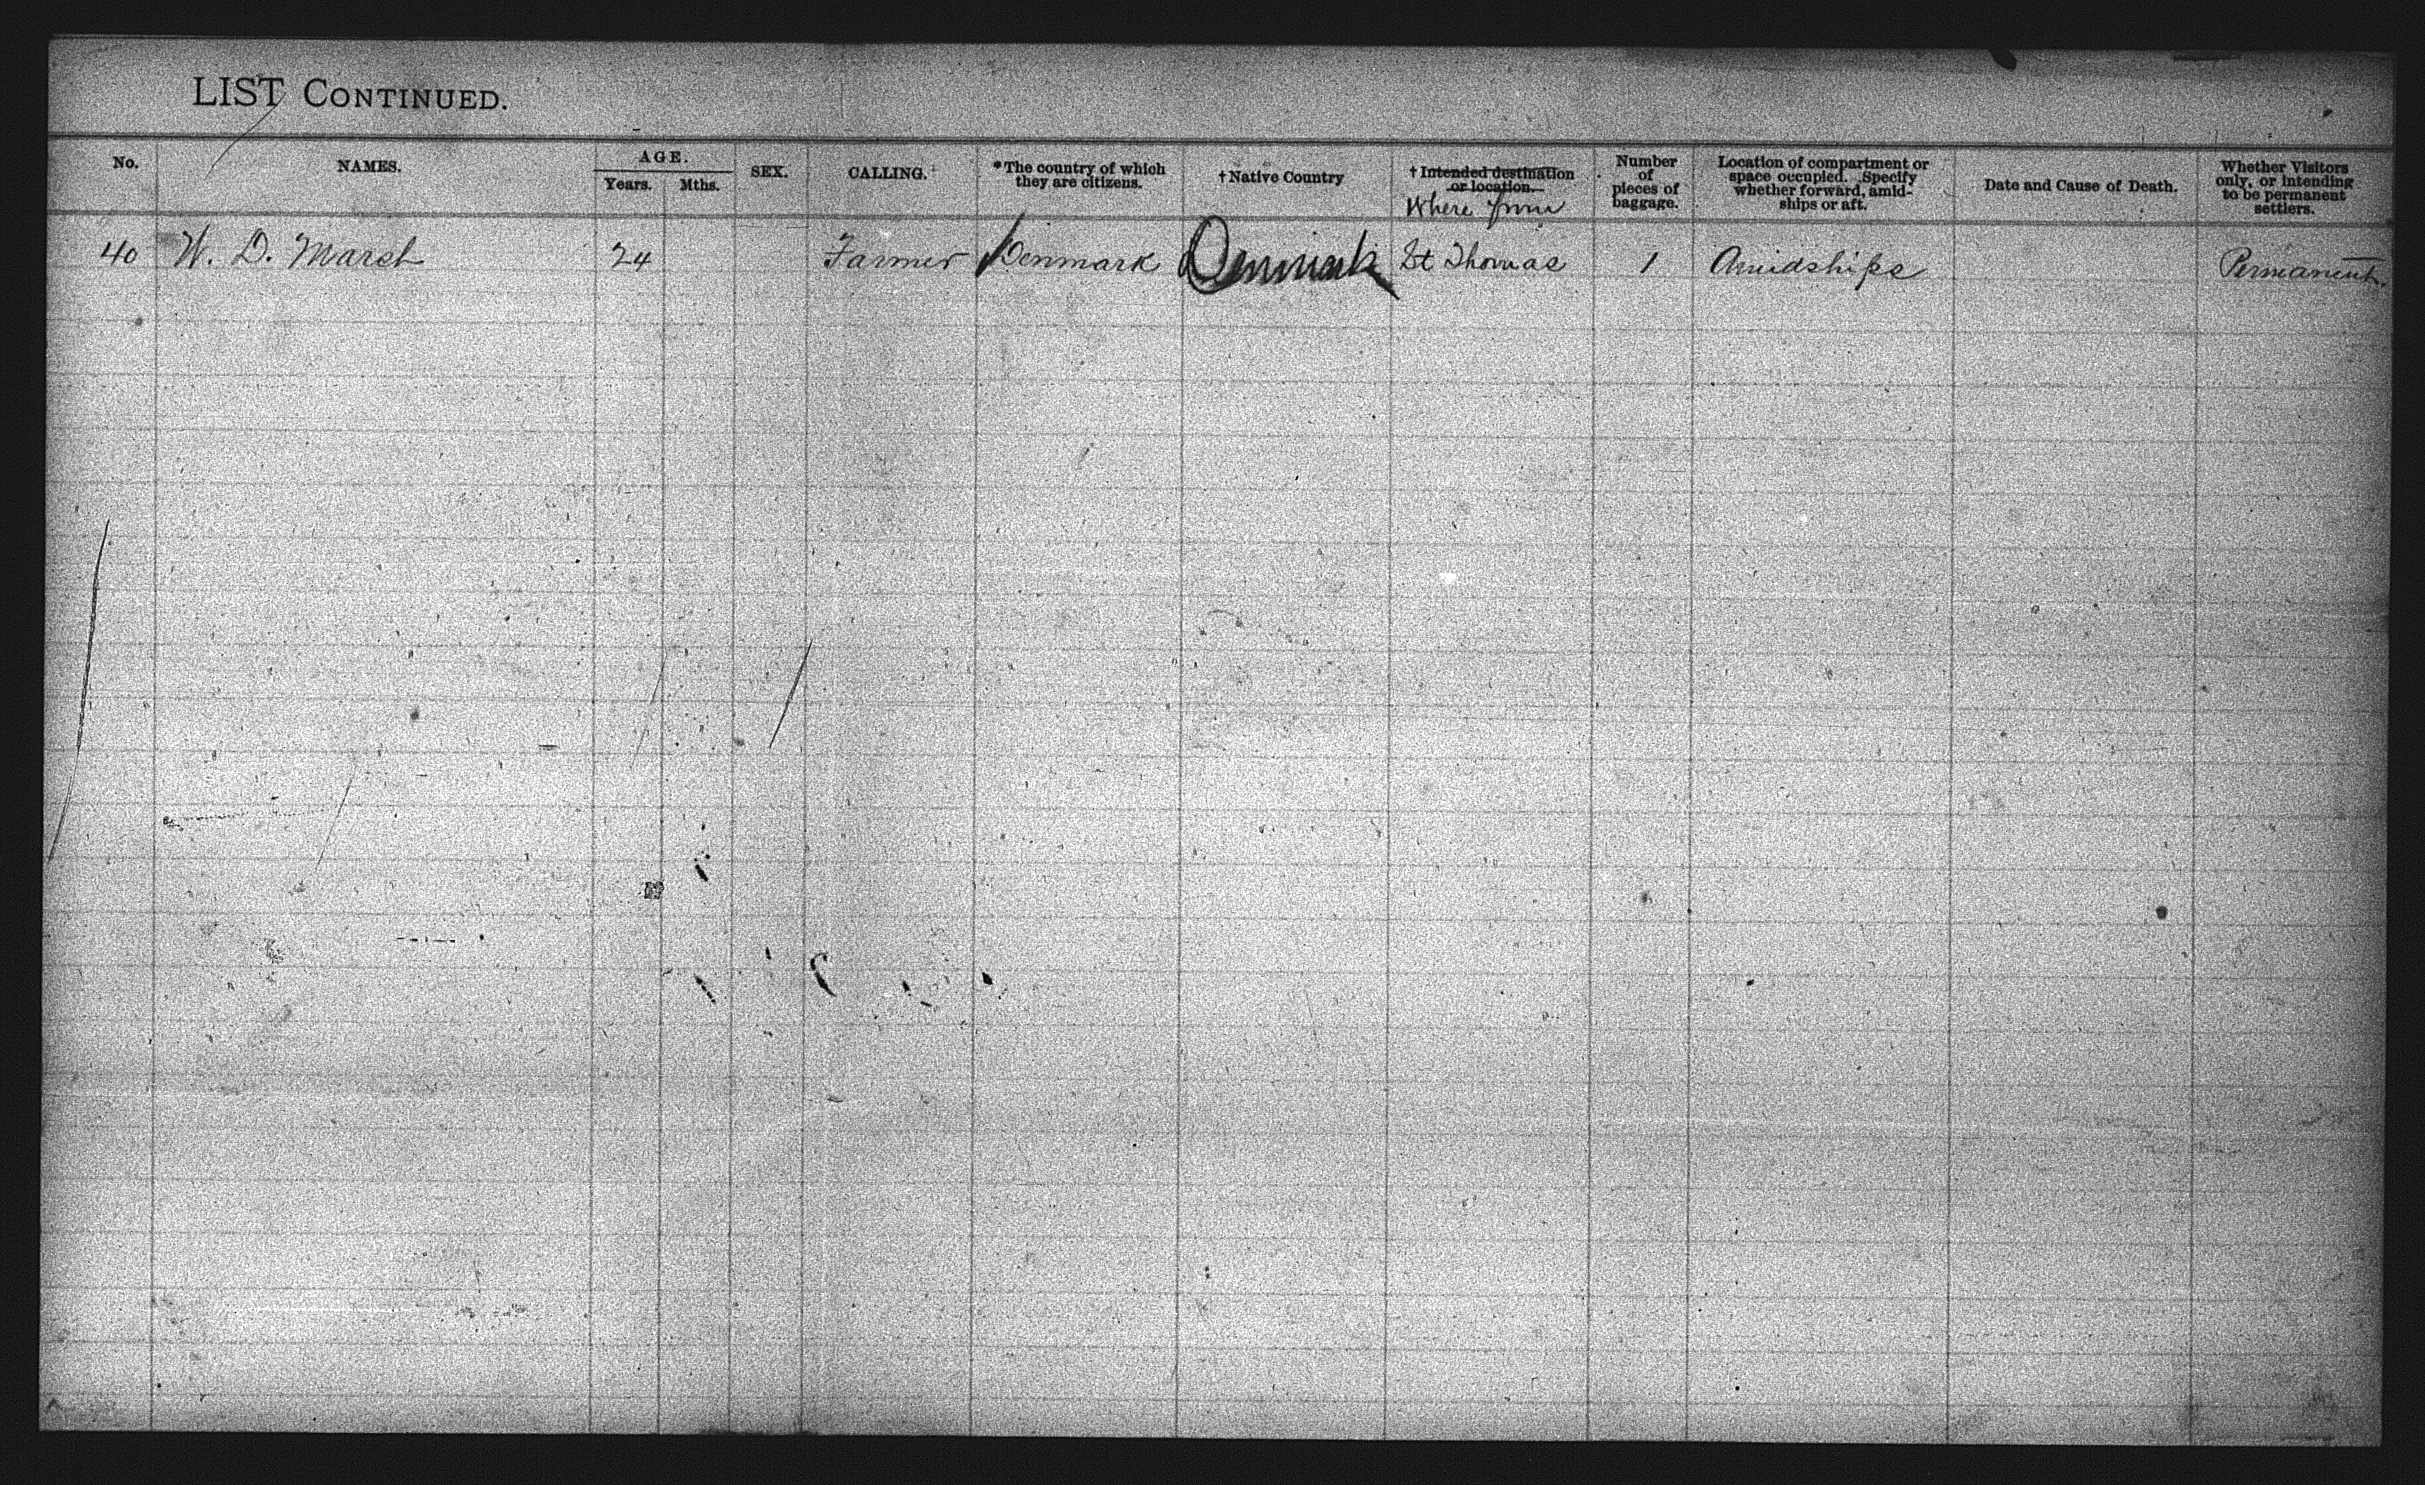 LIST CONTINUED.
No. NAMES. AGE. Years. Mths. SEX. CALLING. *The country of which they are citizens. †Native Country †Intended destination or location. Where from Number of pieces of baggage. Location of compartment or space occupied. Specify whether forward, amidships or aft. Date and Cause of Death. Whether Visitors only, or intending to be permanent settlers.
40 W. D. March 24 Farmer Denmark Denmark St Thomas 1 Amidships Permanent.